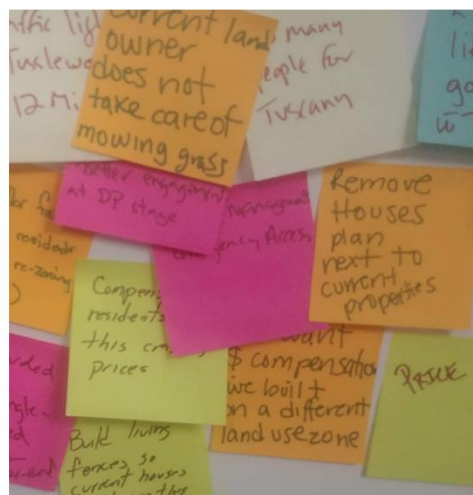 affic lig
Tuxlewo
12 Mi
Current land
owner
does not
take care of
mowing grass
many
people for
Tuscany
li
go
better engagement
at DP stage
Management
Emergency Access
Remove
Houses
plan
next to
current
properties
residents
re-zoning
Compen
residents
this
prices
want
$ compensation
we built
on a different
land use zone
PRICE
Build living
fences so
current houses